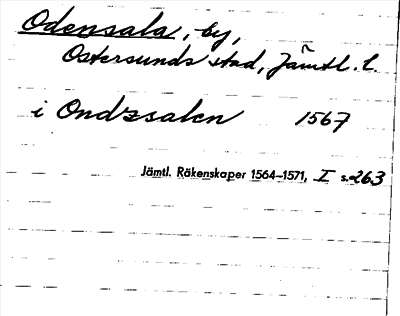 Odensala, by,
Östersunds stad, Jämtl. l.
i Ondzsalen 1567
Jämtl. Räkenskaper 1564–1571, I s. 263